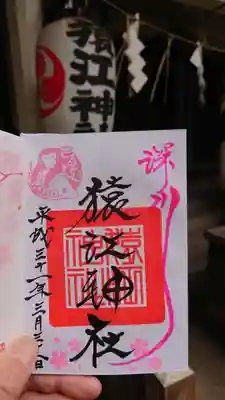 猿江神社
深川
猿江神社
平成三十一年三月三十日